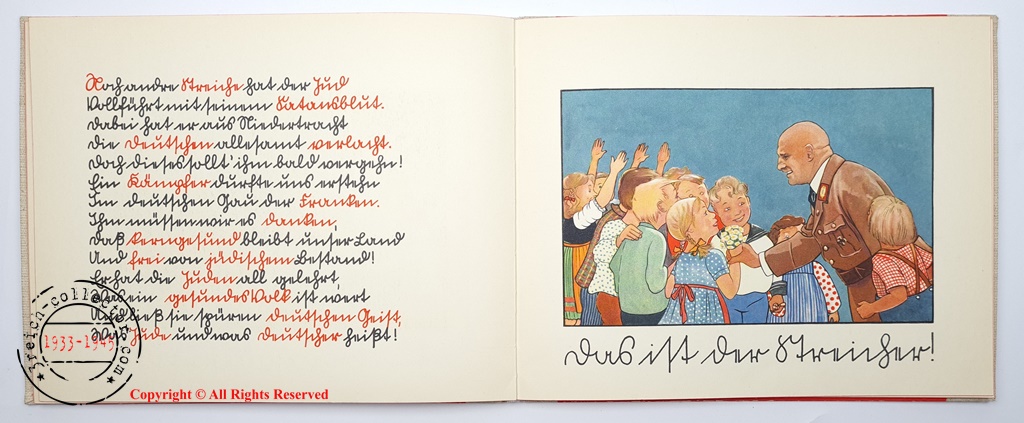 Noch andre Streiche hat der Jud
Vollführt mit seinem Satansblut.
Dabei hat er aus Niedertracht
Die Deutschen allesamt verlacht.
Doch dieses sollt' ihm bald vergehn!
Ein Kämpfer durfte uns erstehn
Im deutschen Gau der Franken.
Ihm müssen wir es danken,
Daß kerngesund bleibt unser Land
Und frei von jüdischem Bestand!
Er hat die Juden all gelehrt,
Was ein gesundes Volk ist wert
Und ließ sie spüren deutschen Geist,
Was Jude und was Deutscher heißt!
1933-1945
Copyright © All Rights Reserved
Das ist der Streicher!